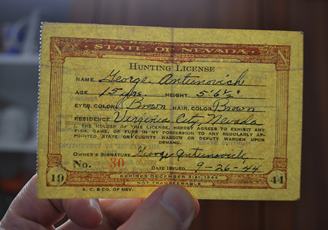 STATE OF NEVADA
HUNTING LICENSE
NAME George Antunovich
AGE 15 yrs. HEIGHT 5' 6½"
EYES, COLOR Brown HAIR, COLOR Brown
RESIDENCE Virginia City, Nevada
THE HOLDER OF THIS LICENSE, HEREBY AGREES TO EXHIBIT ANY
FISH, GAME, OR FURS IN HIS POSSESSION TO ANY REGULARLY AP-
POINTED STATE OR COUNTY WARDEN OR DEPUTY WARDEN UPON
DEMAND.
OWNER'S SIGNATURE George Antunovich
No. 30 DATE ISSUED 9-26-44
19 EXPIRES DECEMBER 31, 1944 44
NOT TRANSFERABLE